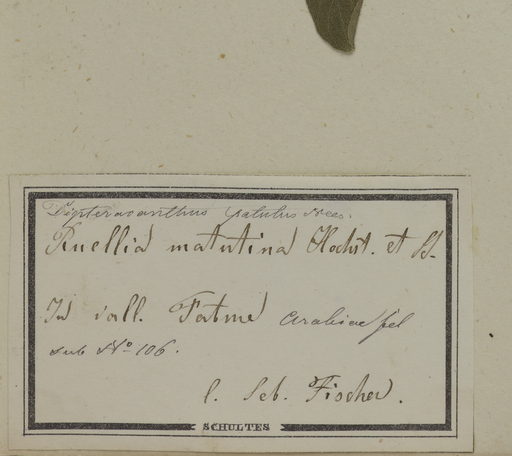 Dipteracanthus patulus Nees.
Ruellia matutina Hochst. et St.
In vall. Fatme Arabiae fel
sub No 106.
l. Seb. Fischer.
SCHULTES